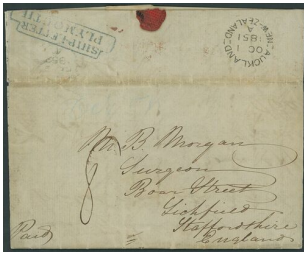 SHIP LETTER
PLYMOUTH
AUCKLAND
NEW-ZEALAND
A
OC 1
1851
Mr. B. Morgan
Surgeon
Boar Street
Lichfield
Staffordshire
England
8
Paid